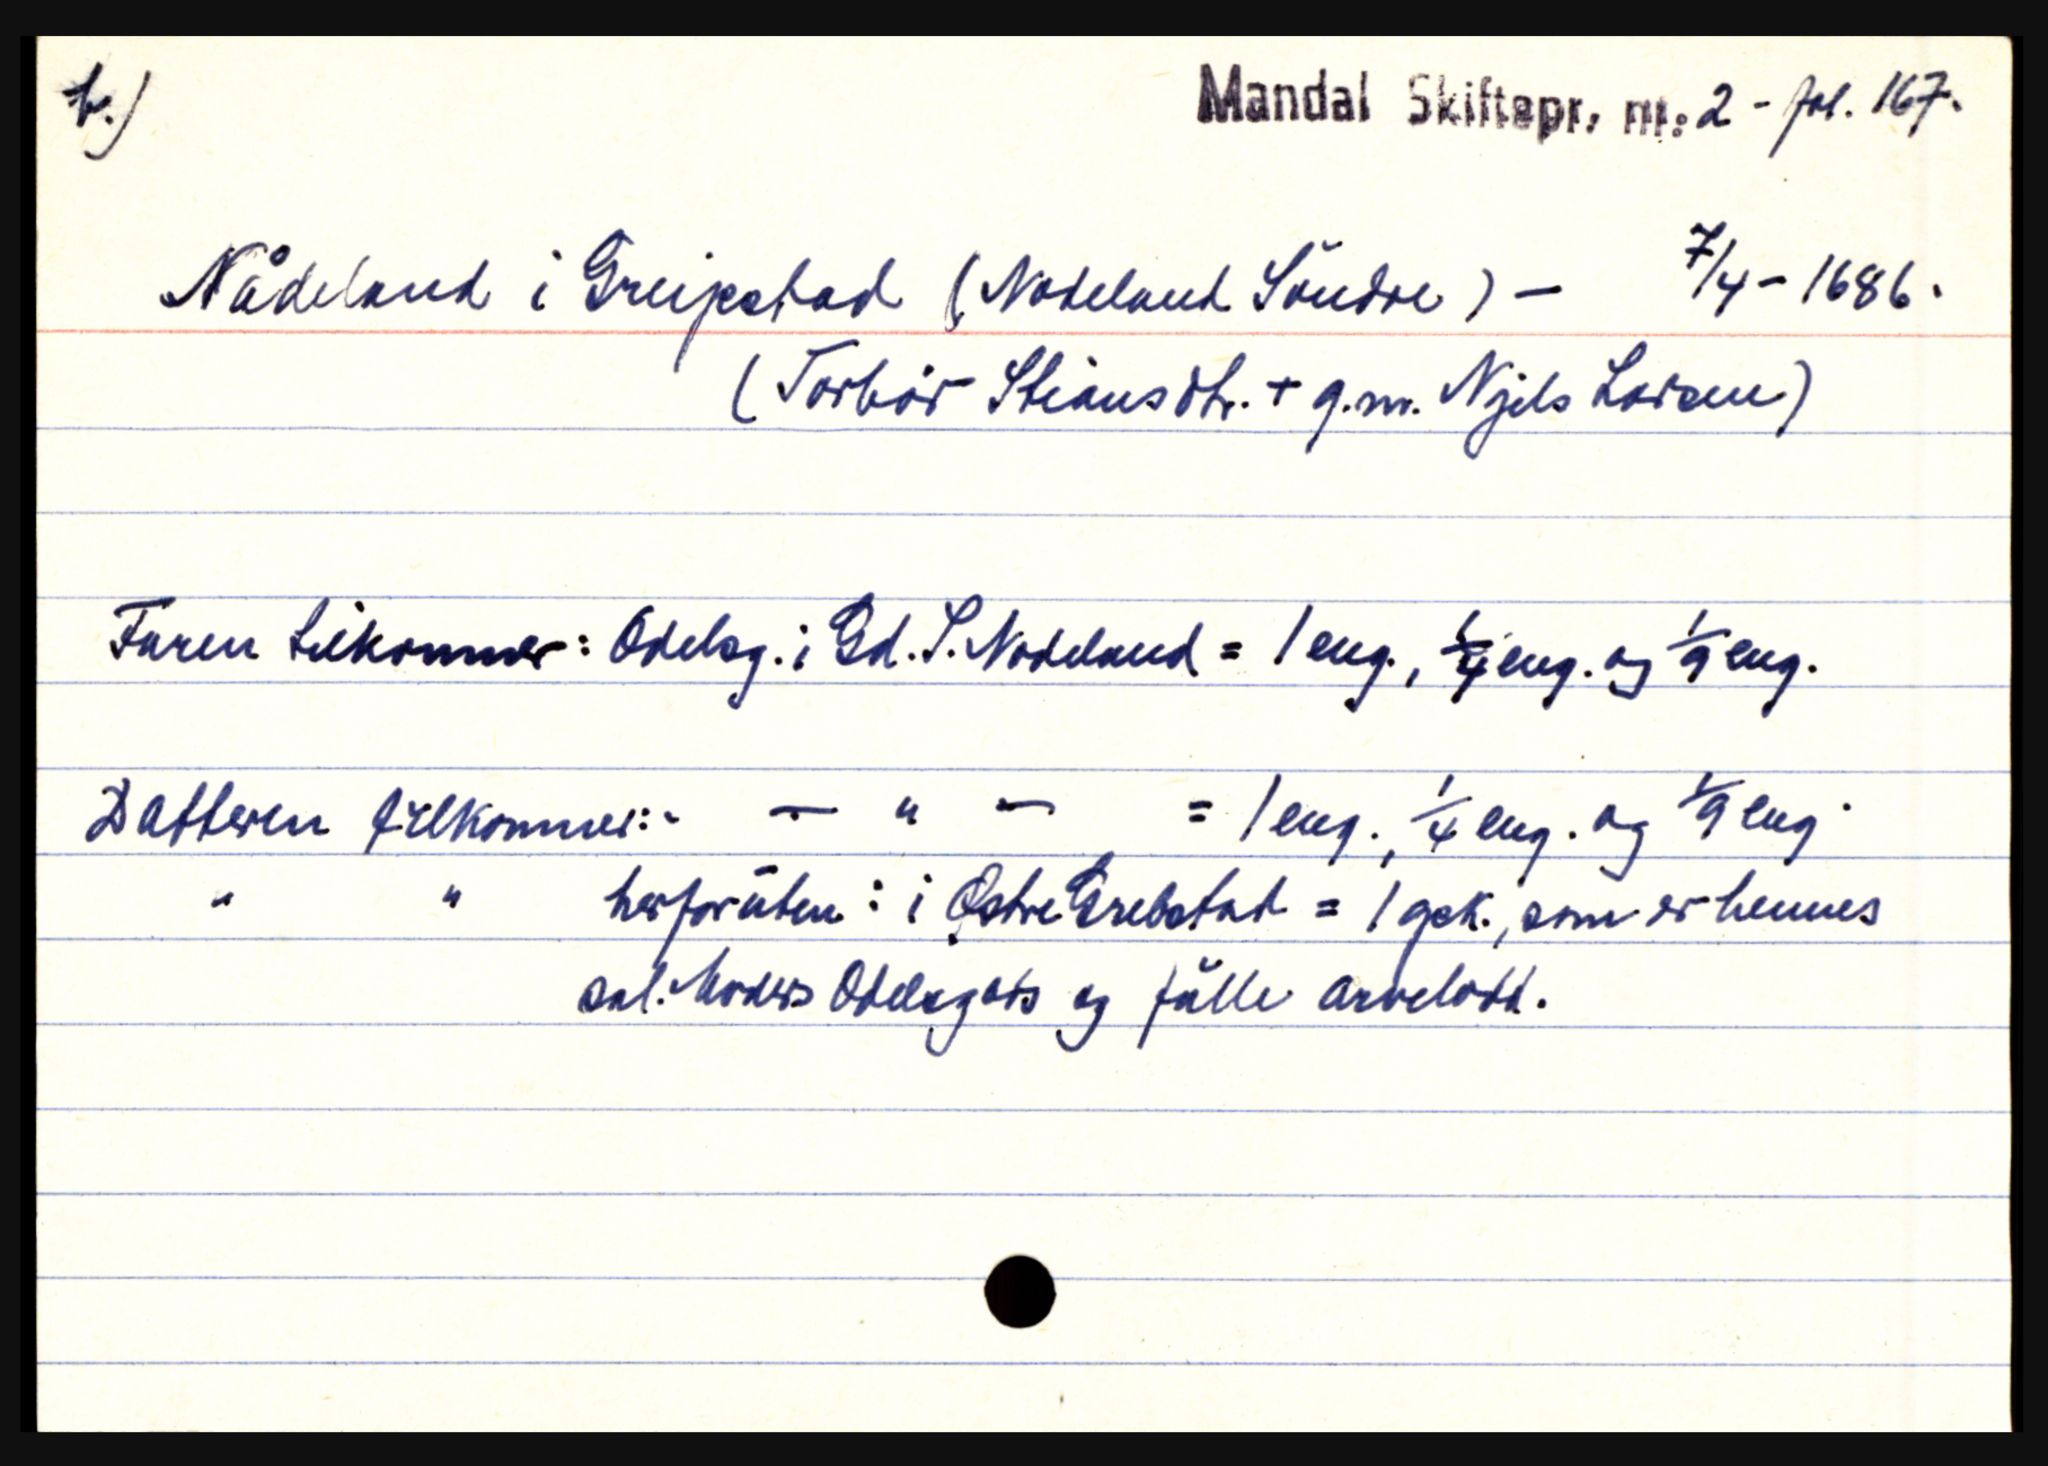 b.)
Mandal Skiftepr. nr: 2 - fol. 167.
Nådeland i Greipstad (Nodeland Söndre) — 7/4 - 1686.
(Torbör Stiansdtr. + g.m. Njels Larsen)
Faren tilkommer: Odelsg. i Gd. S. Nodeland = 1 eng., 1/4 eng. og 1/9 eng.
Datteren tilkommer:- — " — = 1 eng., 1/4 eng. og 1/9 eng.
" " herforŭten: i Østre Grebstad = 1 gsk., som er hennes
sal. Moders Odelsgods og fŭlle arvelodd.